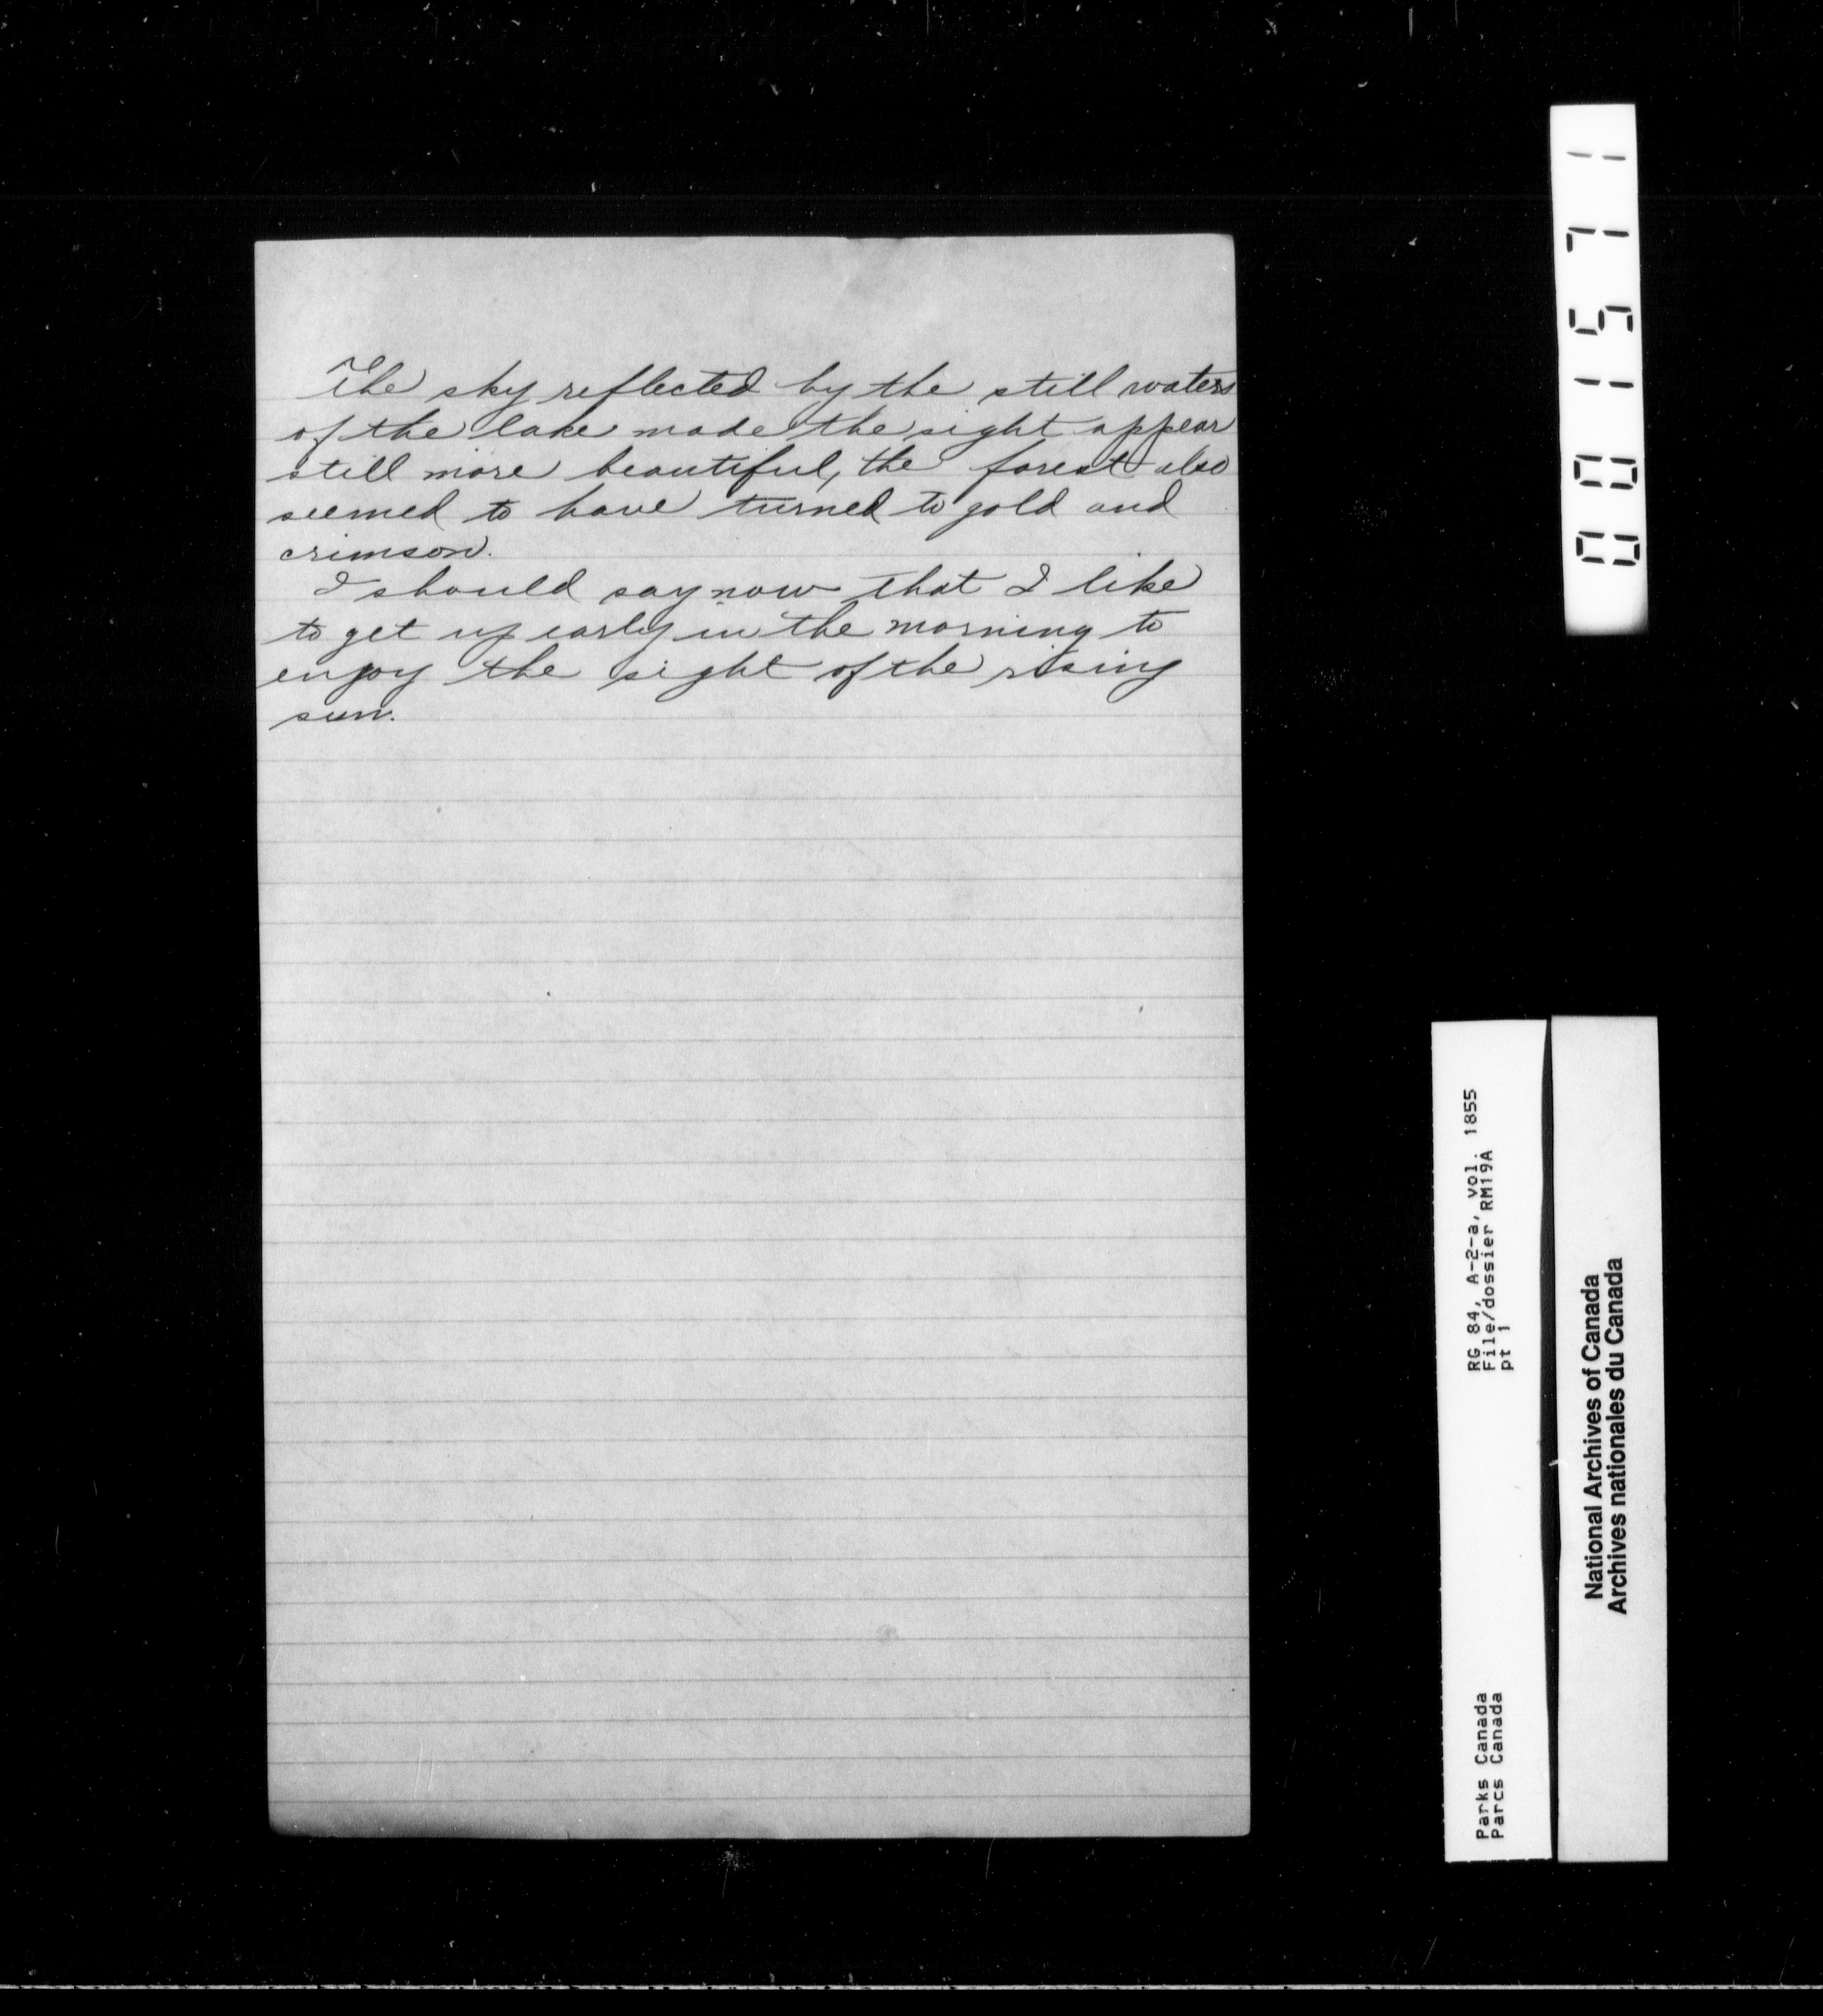 The sky reflected by the still waters
of the lake made the sight appear
still more beautiful, the forest also
seemed to have turned to gold and
crimson.
I should say now that I like
to get up early in the morning to
enjoy the sight of the rising
sun.
001571
RG 84, A-2-a, vol. 1855
File/dossier RM19A
pt 1
Parks Canada
Parcs Canada
National Archives of Canada
Archives nationales du Canada